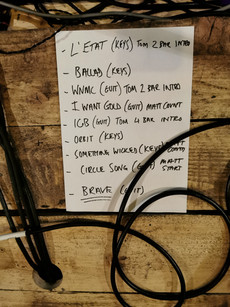 - L'ETAT (KEYS) TOM 2 BAR INTRO
- BALLAD (KEYS)
- WNMC (GUIT) TOM 2 BAR INTRO
- I WANT GOLD (GUIT) MATT COUNT
- ICB (GUIT) TOM 4 BAR INTRO
- ORBIT (KEYS)
- SOMETHING WICKED (KEYS)
- CIRCLE SONG (GUIT) MATT START
- BRAVE (GUIT)